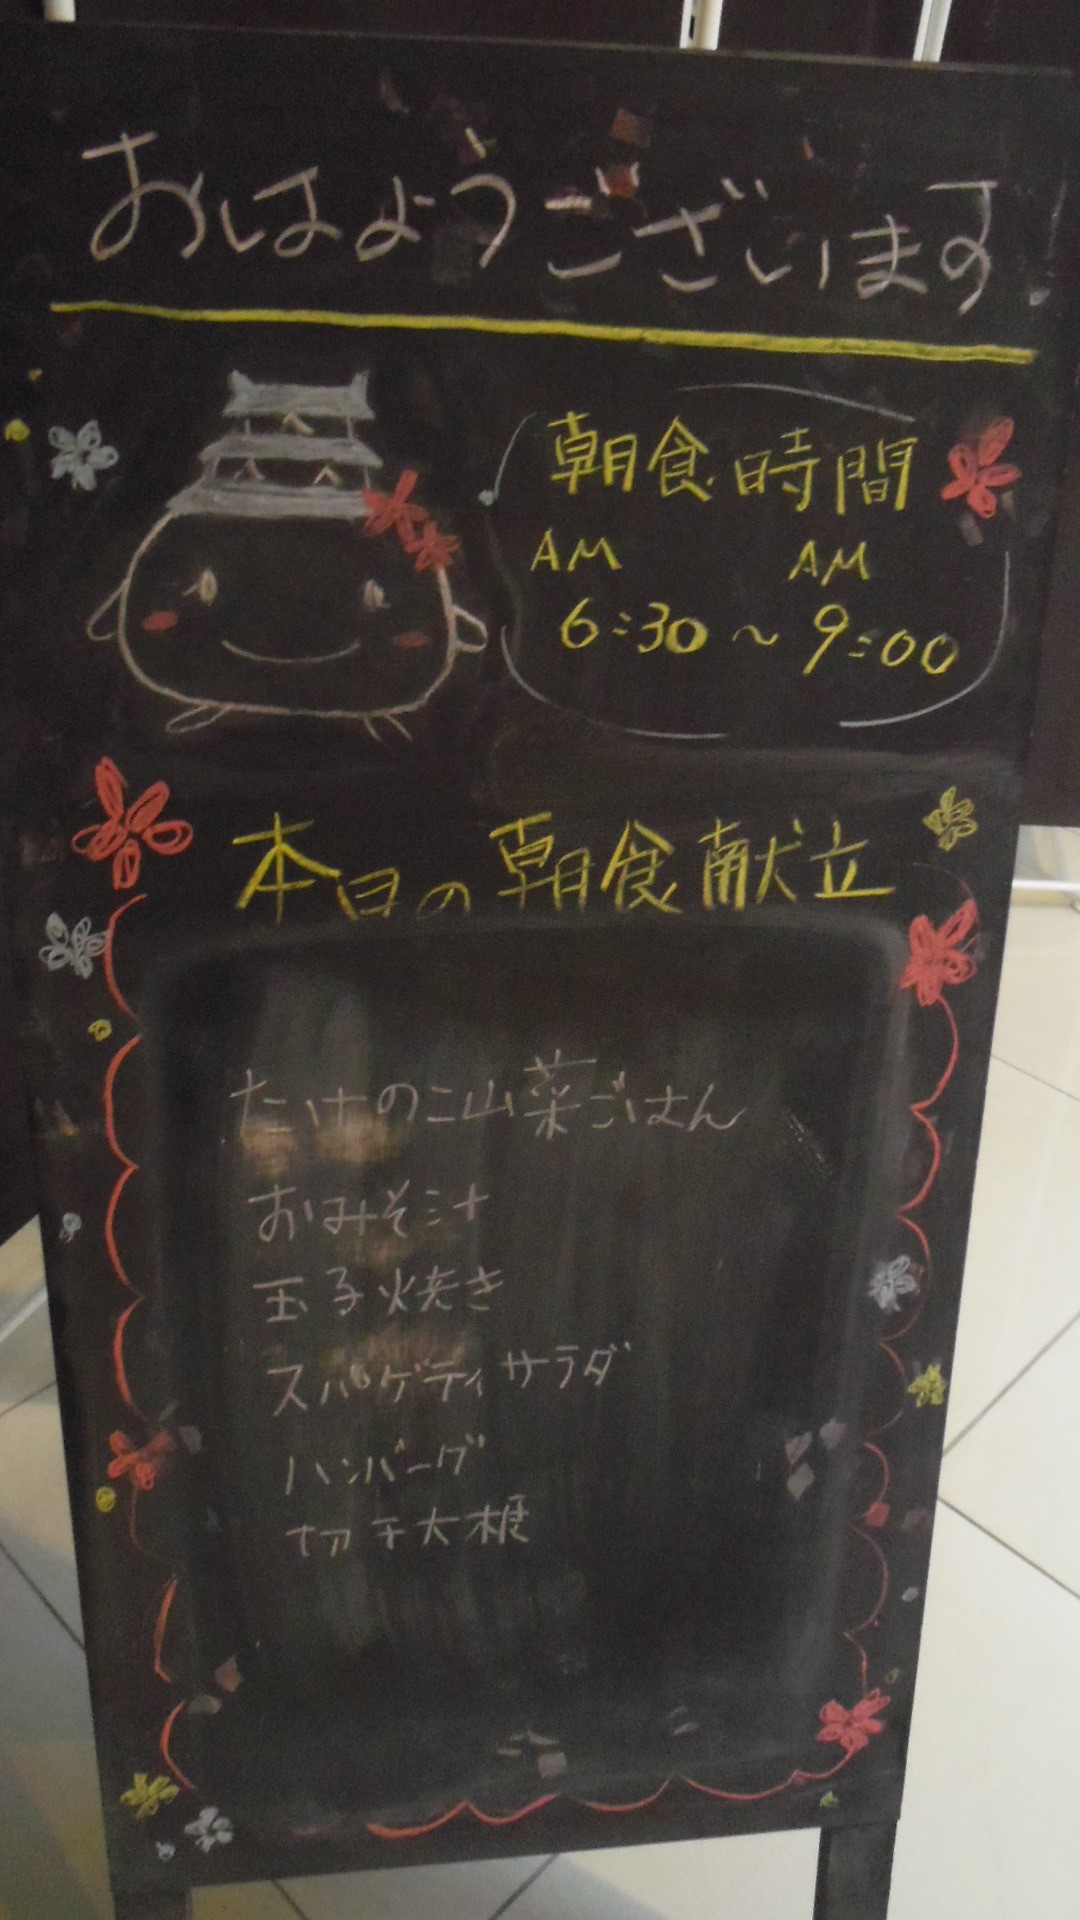 おはようございます
朝食時間
AM AM
6:30~9:00
本日の朝食献立
たけのこ山菜ごはん
おみそ汁
玉子焼き
スパゲティサラダ
ハンバーグ
切干大根